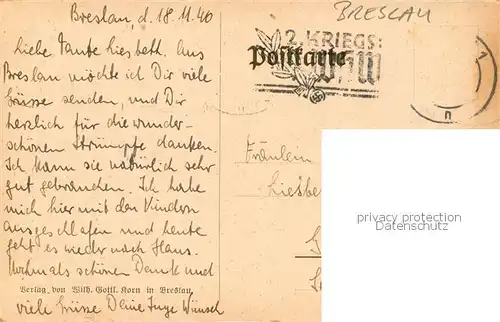 Breslau, d. 18.11.40
BRESLAU
Liebe Tante Liesbeth. Aus
Breslau möchte ich Dir viele
Grüsse senden, und Dir
herzlich für die wunder-
schönen Strümpfe danken.
Ich kann sie natürlich sehr
gut gebrauchen. Ich habe
mich hier mit den Kindern
ausgeschlafen und heute
geht es wieder nach Haus.
Nochmals schönen Dank und
Verlag von Wilh. Gottl. Korn in Breslau.
viele Grüsse Deine Inge Wünsch
2. KRIEGS:
WHW
Postkarte
Fräulein
Liesbe
privacy protection
for AdressData